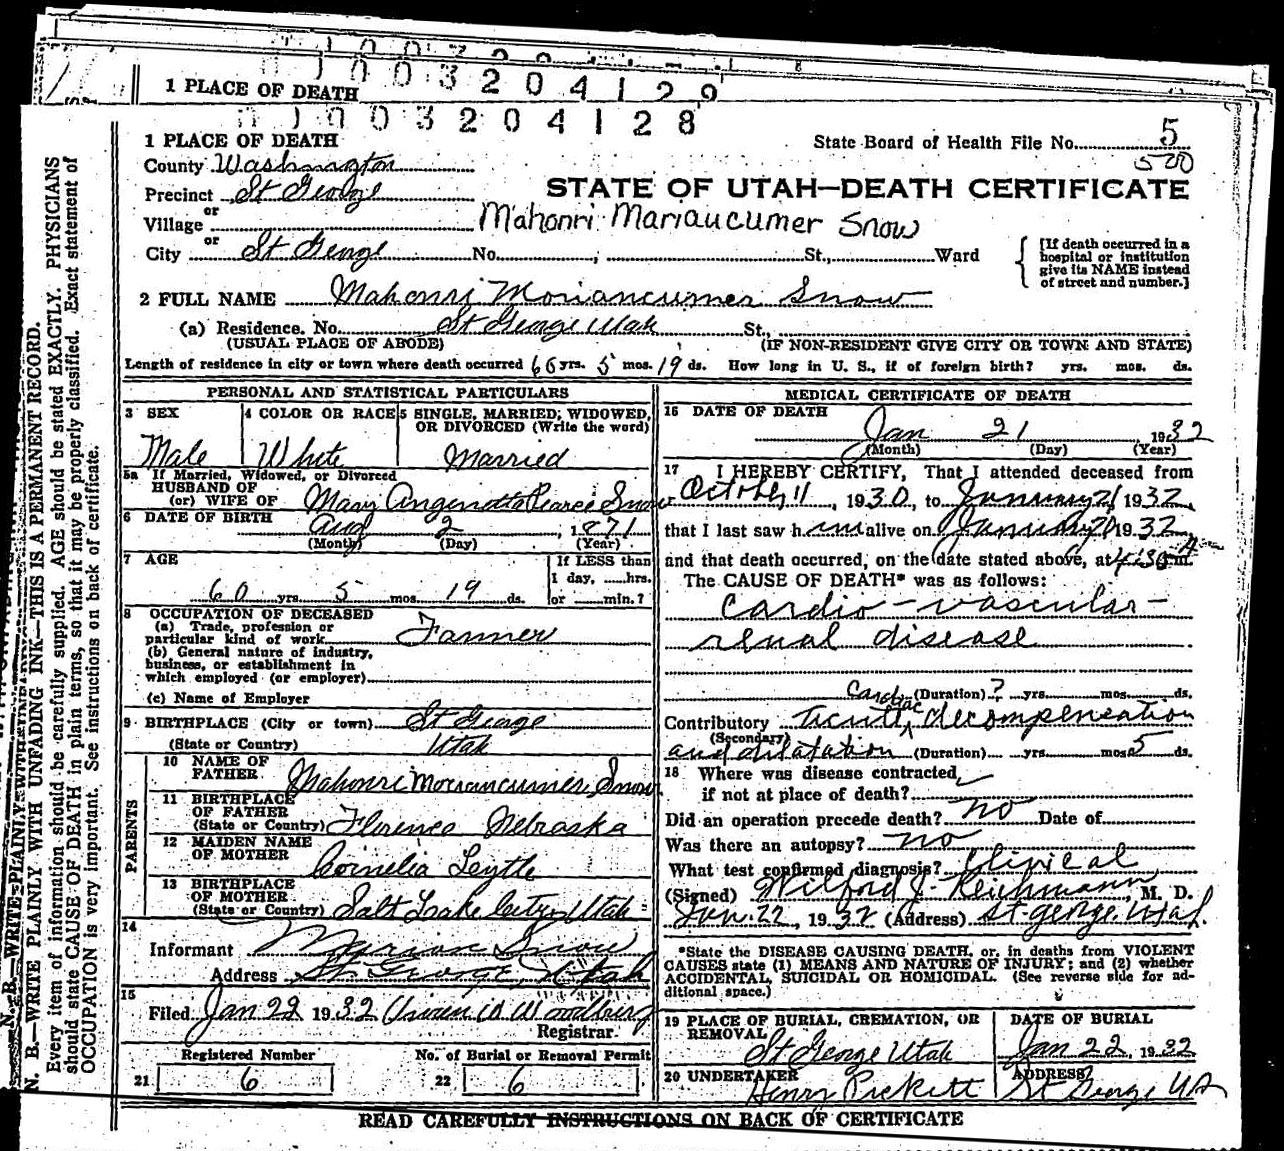 1 PLACE OF DEATH
1003204129
1003204128
1 PLACE OF DEATH
State Board of Health File No. 5
500
County Washington
Precinct St George
STATE OF UTAH—DEATH CERTIFICATE
or
Village
Mahonri Mariaucumer Snow
or
City St George No. , St., Ward
[If death occurred in a hospital or institution give its NAME instead of street and number.]
2 FULL NAME Mahonri Moriancumer Snow
(a) Residence. No. St George Utah St.,
(USUAL PLACE OF ABODE) (IF NON-RESIDENT GIVE CITY OR TOWN AND STATE)
Length of residence in city or town where death occurred 66 yrs. 5 mos. 19 ds. How long in U. S., if of foreign birth? yrs. mos. ds.
PERSONAL AND STATISTICAL PARTICULARS
3 SEX 4 COLOR OR RACE 5 SINGLE, MARRIED, WIDOWED, OR DIVORCED (Write the word)
Male White Married
5a If Married, Widowed, or Divorced
HUSBAND OF
(or) WIFE OF Mary Angenetta Pearce Snow
6 DATE OF BIRTH Aug 2, 1871
(Month) (Day) (Year)
7 AGE If LESS than
1 day, hrs.
60 yrs. 5 mos. 19 ds. or min.?
8 OCCUPATION OF DECEASED
(a) Trade, profession or
particular kind of work Farmer
(b) General nature of industry,
business, or establishment in
which employed (or employer)
(c) Name of Employer
9 BIRTHPLACE (City or town) St George
(State or Country) Utah
PARENTS
10 NAME OF
FATHER Mahonri Moriancumer Snow
11 BIRTHPLACE
OF FATHER
(State or Country) Florence Nebraska
12 MAIDEN NAME
OF MOTHER Cornelia Leytle
13 BIRTHPLACE
OF MOTHER
(State or Country) Salt Lake City, Utah
14
Informant Marion Snow
Address St. George, Utah
15
Filed Jan 22 1932
Registrar.
Registered Number No. of Burial or Removal Permit
21 6 22 6
MEDICAL CERTIFICATE OF DEATH
16 DATE OF DEATH
Jan 21 1932
(Month) (Day) (Year)
17 I HEREBY CERTIFY, That I attended deceased from
October 11, 1930, to January 21 1932,
that I last saw him alive on January 1932
and that death occurred, on the date stated above, at 4:30 A m.
The CAUSE OF DEATH* was as follows:
Cardio-vascular-
renal disease
(Duration) ? yrs. mos. ds.
Contributory cardiac decompensation
(Secondary)
and dilatation (Duration) yrs. mos. 5 ds.
18 Where was disease contracted
if not at place of death?
Did an operation precede death? no Date of
Was there an autopsy? no
What test confirmed diagnosis? Clinical
(Signed) Wilford J. Reichmann, M. D.
Jan. 22, 1932 (Address) St. George, Utah.
*State the DISEASE CAUSING DEATH, or, in deaths from VIOLENT
CAUSES state (1) MEANS AND NATURE OF INJURY; and (2) whether
ACCIDENTAL, SUICIDAL OR HOMICIDAL. (See reverse side for ad-
ditional space.)
19 PLACE OF BURIAL, CREMATION, OR REMOVAL DATE OF BURIAL
St George Utah Jan 22, 1932
20 UNDERTAKER ADDRESS
Henry Pickett St George Ut
READ CAREFULLY INSTRUCTIONS ON BACK OF CERTIFICATE
N. B.—WRITE PLAINLY WITH UNFADING INK—THIS IS A PERMANENT RECORD.
Every item of information should be carefully supplied. AGE should be stated EXACTLY. PHYSICIANS
should state CAUSE OF DEATH in plain terms, so that it may be properly classified. Exact statement of
OCCUPATION is very important. See instructions on back of certificate.